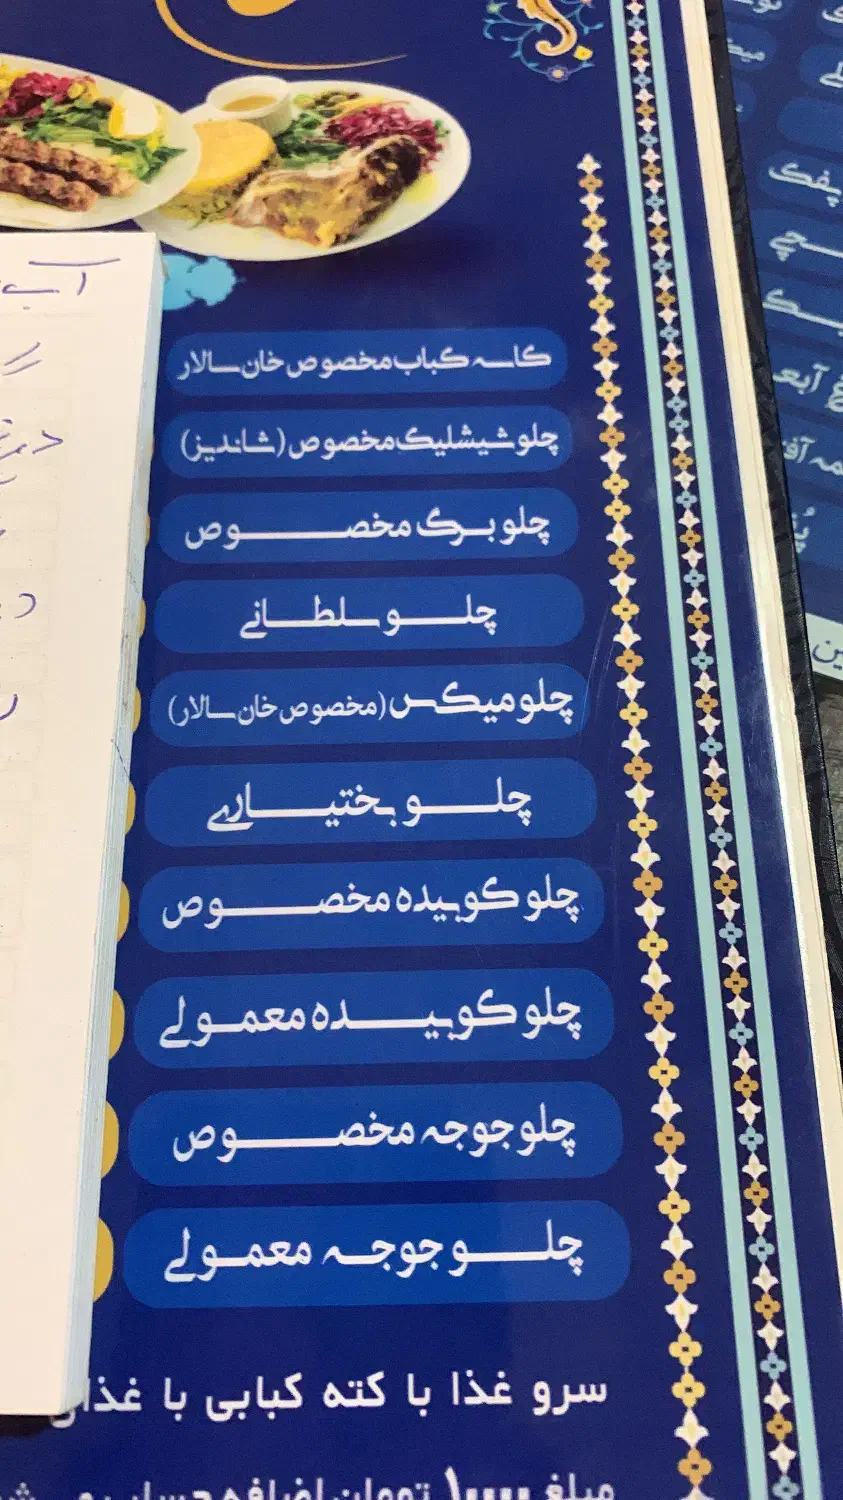 کاسه کباب مخصوص خان سالار
چلو شیشلیک مخصوص (شاندیز)
چلو برگ مخصوص
چلو سلطانی
چلو میکس (مخصوص خان سالار)
چلو بختیاری
چلو کوبیده مخصوص
چلو کوبیده معمولی
چلو جوجه مخصوص
چلو جوجه معمولی
سرو غذا با کته کبابی با
مبلغ ۱۰۰۰۰ تومان اضافه حساب
آب
پفک